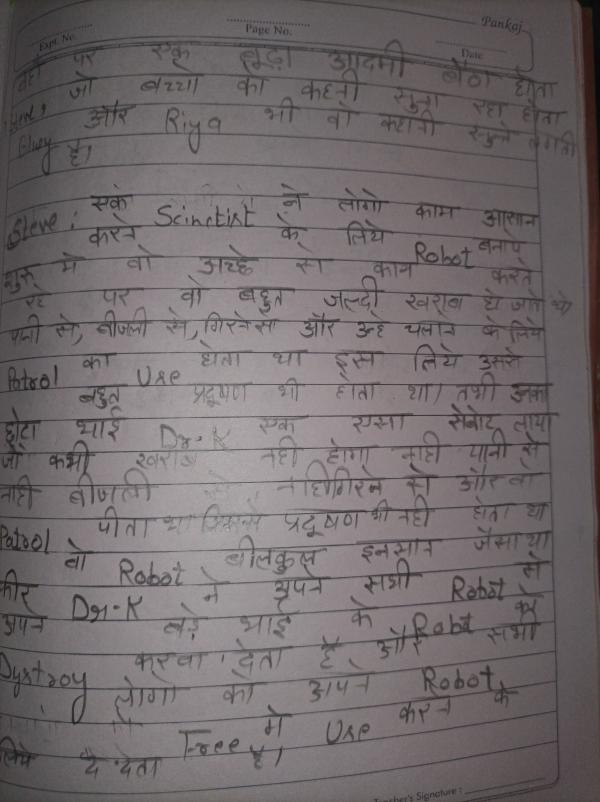 Pankaj
Expt. No.
Page No.
Date
वहाँ पर एक बूढ़ा आदमी बैठा होता
जो बच्चों को कहनी सुना रहा होता
और Riya भी वो कहानी सुनने लगती
है।
Steve: एक Scinctist ने लोगो काम आसान
करने के लिये Robot बनाए
शुरू मे वो अच्छे से काम करते
रहे पर वो बहुत जल्दी खराब हो जाते थे
पानी से, बीजली से, गिरने से और उन्हे चलाने के लिये
Patrol का Use होता था इस लिये उससे
बहुत प्रदूषण भी होता था। तभी उनका
छोटा भाई Dr-K एक एसा रोबोट लाया
जो कभी खराब नही होगा नाही पानी से
नाही बीजली से नाहि गिरने से और वो
Patrol पीता था जिससे प्रदूषण भी नही होता था
वो Robot बीलकुल इनसान जैसा था
फीर Dr-K ने अपने सभी Robot से
अपने बड़े भाई के Robot को
Dystroy करवा देता है और सभी
लोगो को अपने Robot
Free मे Use करने के
लिये दे देता है।
Teacher's Signature :